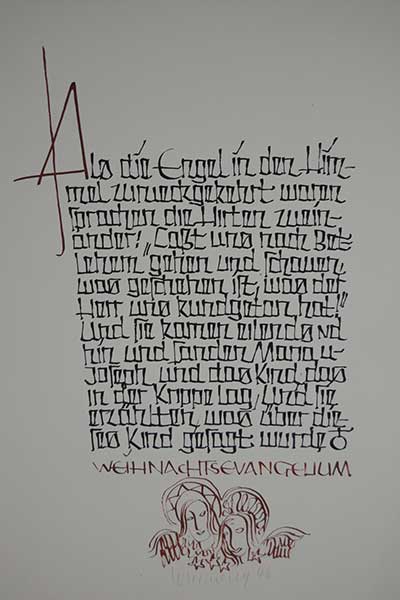 Als die Engel in den Him-
mel zurueckgekehrt waren
sprachen die Hirten zuein-
ander: „Laßt uns nach Bet-
lehem gehen und schauen,
was geschehen ist, was der
Herr uns kundgetan hat!"
Und sie kamen eilends
hin und fanden Maria u.
Joseph und das Kind, das
in der Krippe lag. Und sie
erzählten, was über die-
ses Kind gesagt wurde
WEIHNACHTSEVANGELIUM